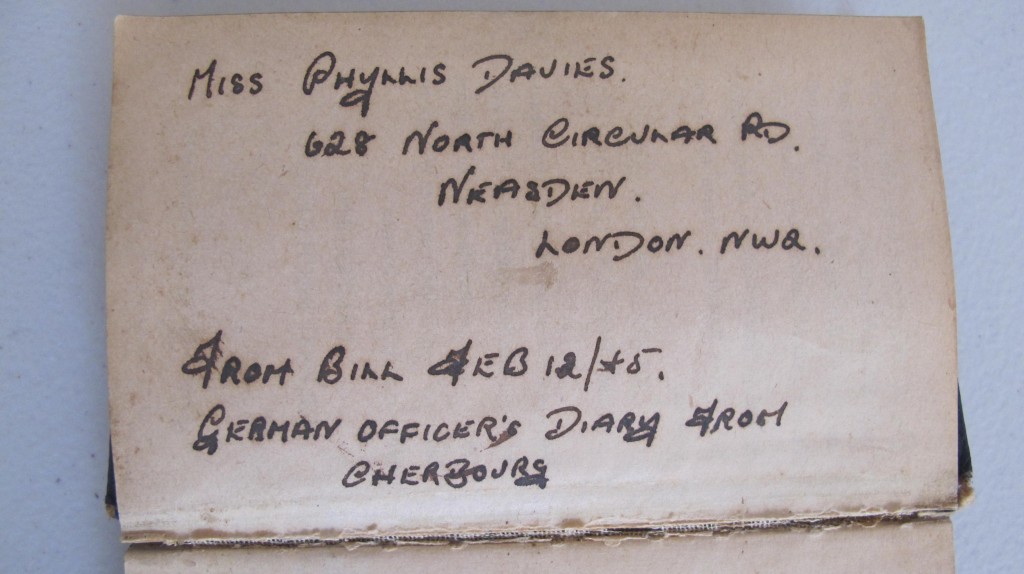 Miss Phyllis Davies.
628 North Circular Rd.
Neasden.
London. NW2.
From Bill Feb 12/45.
German Officer's Diary From
Cherbourg